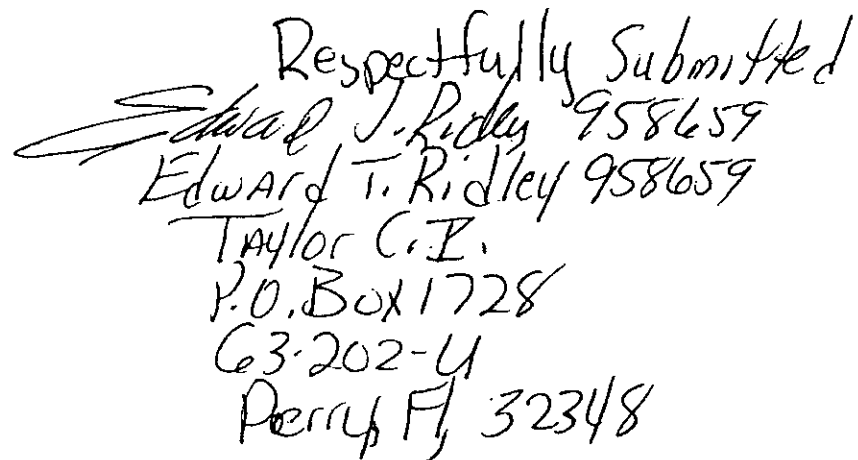 Respectfully Submitted
Edward T. Ridley 958659
Edward T. Ridley 958659
Taylor C.I.
P.O. Box 1728
G3-202-U
Perry, Fl, 32348